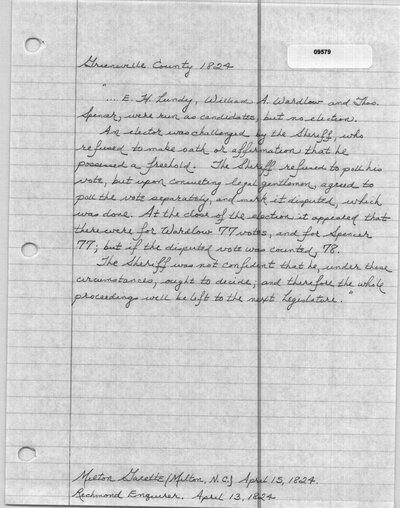 09579
Greenville County 1824
".... E. H. Lundy, William A. Wardlow and Thos.
Spencer, were run as candidates, but no election.
An elector was challenged by the Sheriff, who
refused to make oath or affirmation that he
possessed a freehold. The Sheriff refused to poll his
vote, but upon consulting legal gentlemen, agreed to
poll the vote separately, and mark it disputed, which
was done. At the close of the election it appeared that
there were for Wardlow 77 votes, and for Spencer
77; but if the disputed vote was counted, 78.
The Sheriff was not confident that he, under these
circumstances, ought to decide; and therefore the whole
proceedings will be left to the next Legislature."
Milton Gazette (Milton, N.C.) April 15, 1824.
Richmond Enquirer. April 13, 1824